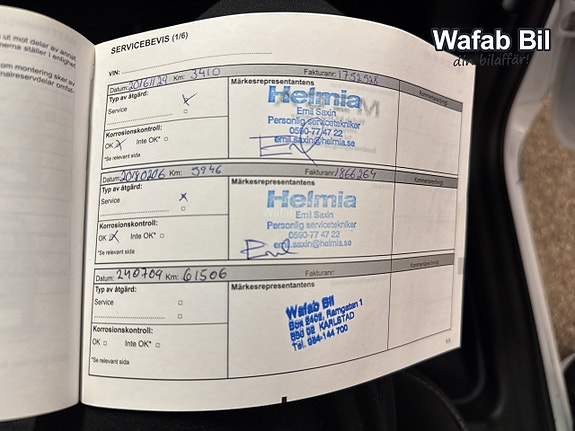 Wafab Bil
din bilaffär!
ut mot delar av annat
nerna ställer i enlighet
om montering sker av
SERVICEBEVIS (1/6)
VIN:
Datum: 20161129 Km: 3410 Fakturanr:
Typ av åtgärd:
Service
Märkesrepresentantens
Helmia
Emil Saxin
Personlig servicetekniker
0590-77 47 22
emil.saxin@helmia.se
Korrosionskontroll:
OK Inte OK*
*Se relevant sida
Datum: 20180206 Km: 5946 Fakturanr: 1866264
Typ av åtgärd:
Service
Märkesrepresentantens
Helmia
Emil Saxin
Personlig servicetekniker
0590-77 47 22
emil.saxin@helmia.se
Korrosionskontroll:
OK Inte OK*
*Se relevant sida
Datum: 240709 Km: 61506 Fakturanr:
Typ av åtgärd:
Service
Märkesrepresentantens
Wafab Bil
Box 5402, Ramgatan 1
650 02 KARLSTAD
Tel. 054-144 700
Korrosionskontroll:
OK Inte OK*
*Se relevant sida